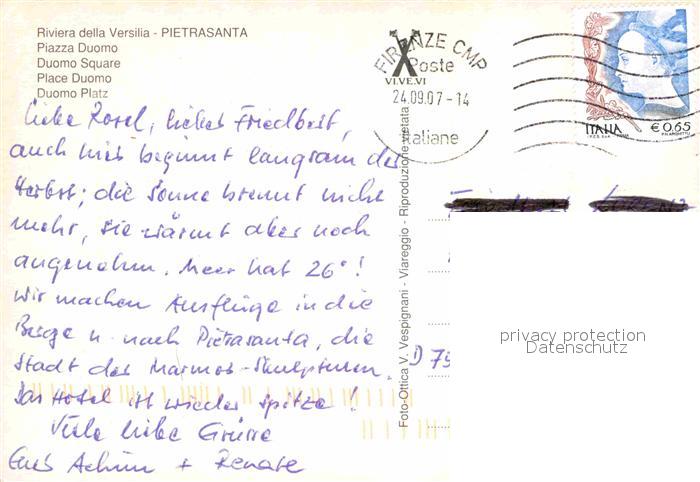 Riviera della Versilia - PIETRASANTA
Piazza Duomo
Duomo Square
Place Duomo
Duomo Platz
Liebe Rosel, lieber Friedbert,
auch hier beginnt langsam der
Herbst; die Sonne brennt nicht
mehr, sie wärmt aber noch
angenehm. Meer hat 26°!
Wir machen Ausflüge in die
Berge u. nach Pietrasanta, die
Stadt der Marmor-Skulpturen.
Das Hotel ist wieder spitze!
Viele liebe Grüsse
Eure Achim + Renate
Foto-Ottica V. Vespignani - Viareggio - Riproduzione vietata
FIRENZE CMP
Poste
VI.VE.VI
24.09.07-14
Italiane
ITALIA
€ 0,65
D 75
privacy protection
Datenschutz